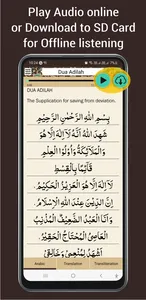 Play Audio online
or Download to SD Card
for Offline listening
Dua Adilah
DUA ADILAH
The Supplication for saving from deviation.
بِسْمِ اللهِ الرَّحْمٰنِ الرَّحِيْمِ
شَهِدَ اللهُ أَنَّهُ لَآ اِلٰهَ اِلَّا هُوَ
وَالْمَلَآئِكَةُ وَاُولُوا الْعِلْمِ
قَآئِمًا بِالْقِسْطِ
لَآ اِلٰهَ اِلَّا هُوَ الْعَزِيْزُ الْحَكِيْمُ
اِنَّ الدِّيْنَ عِنْدَ اللهِ الْاِسْلَامُ
وَاَنَا الْعَبْدُ الضَّعِيْفُ الْمُذْنِبُ
الْعَاصِيْ الْمُحْتَاجُ الْحَقِيْرُ
اَشْهَدُ لِمُنْعِمِيْ وَخَالِقِيْ
Arabic
Translation
Transliteration